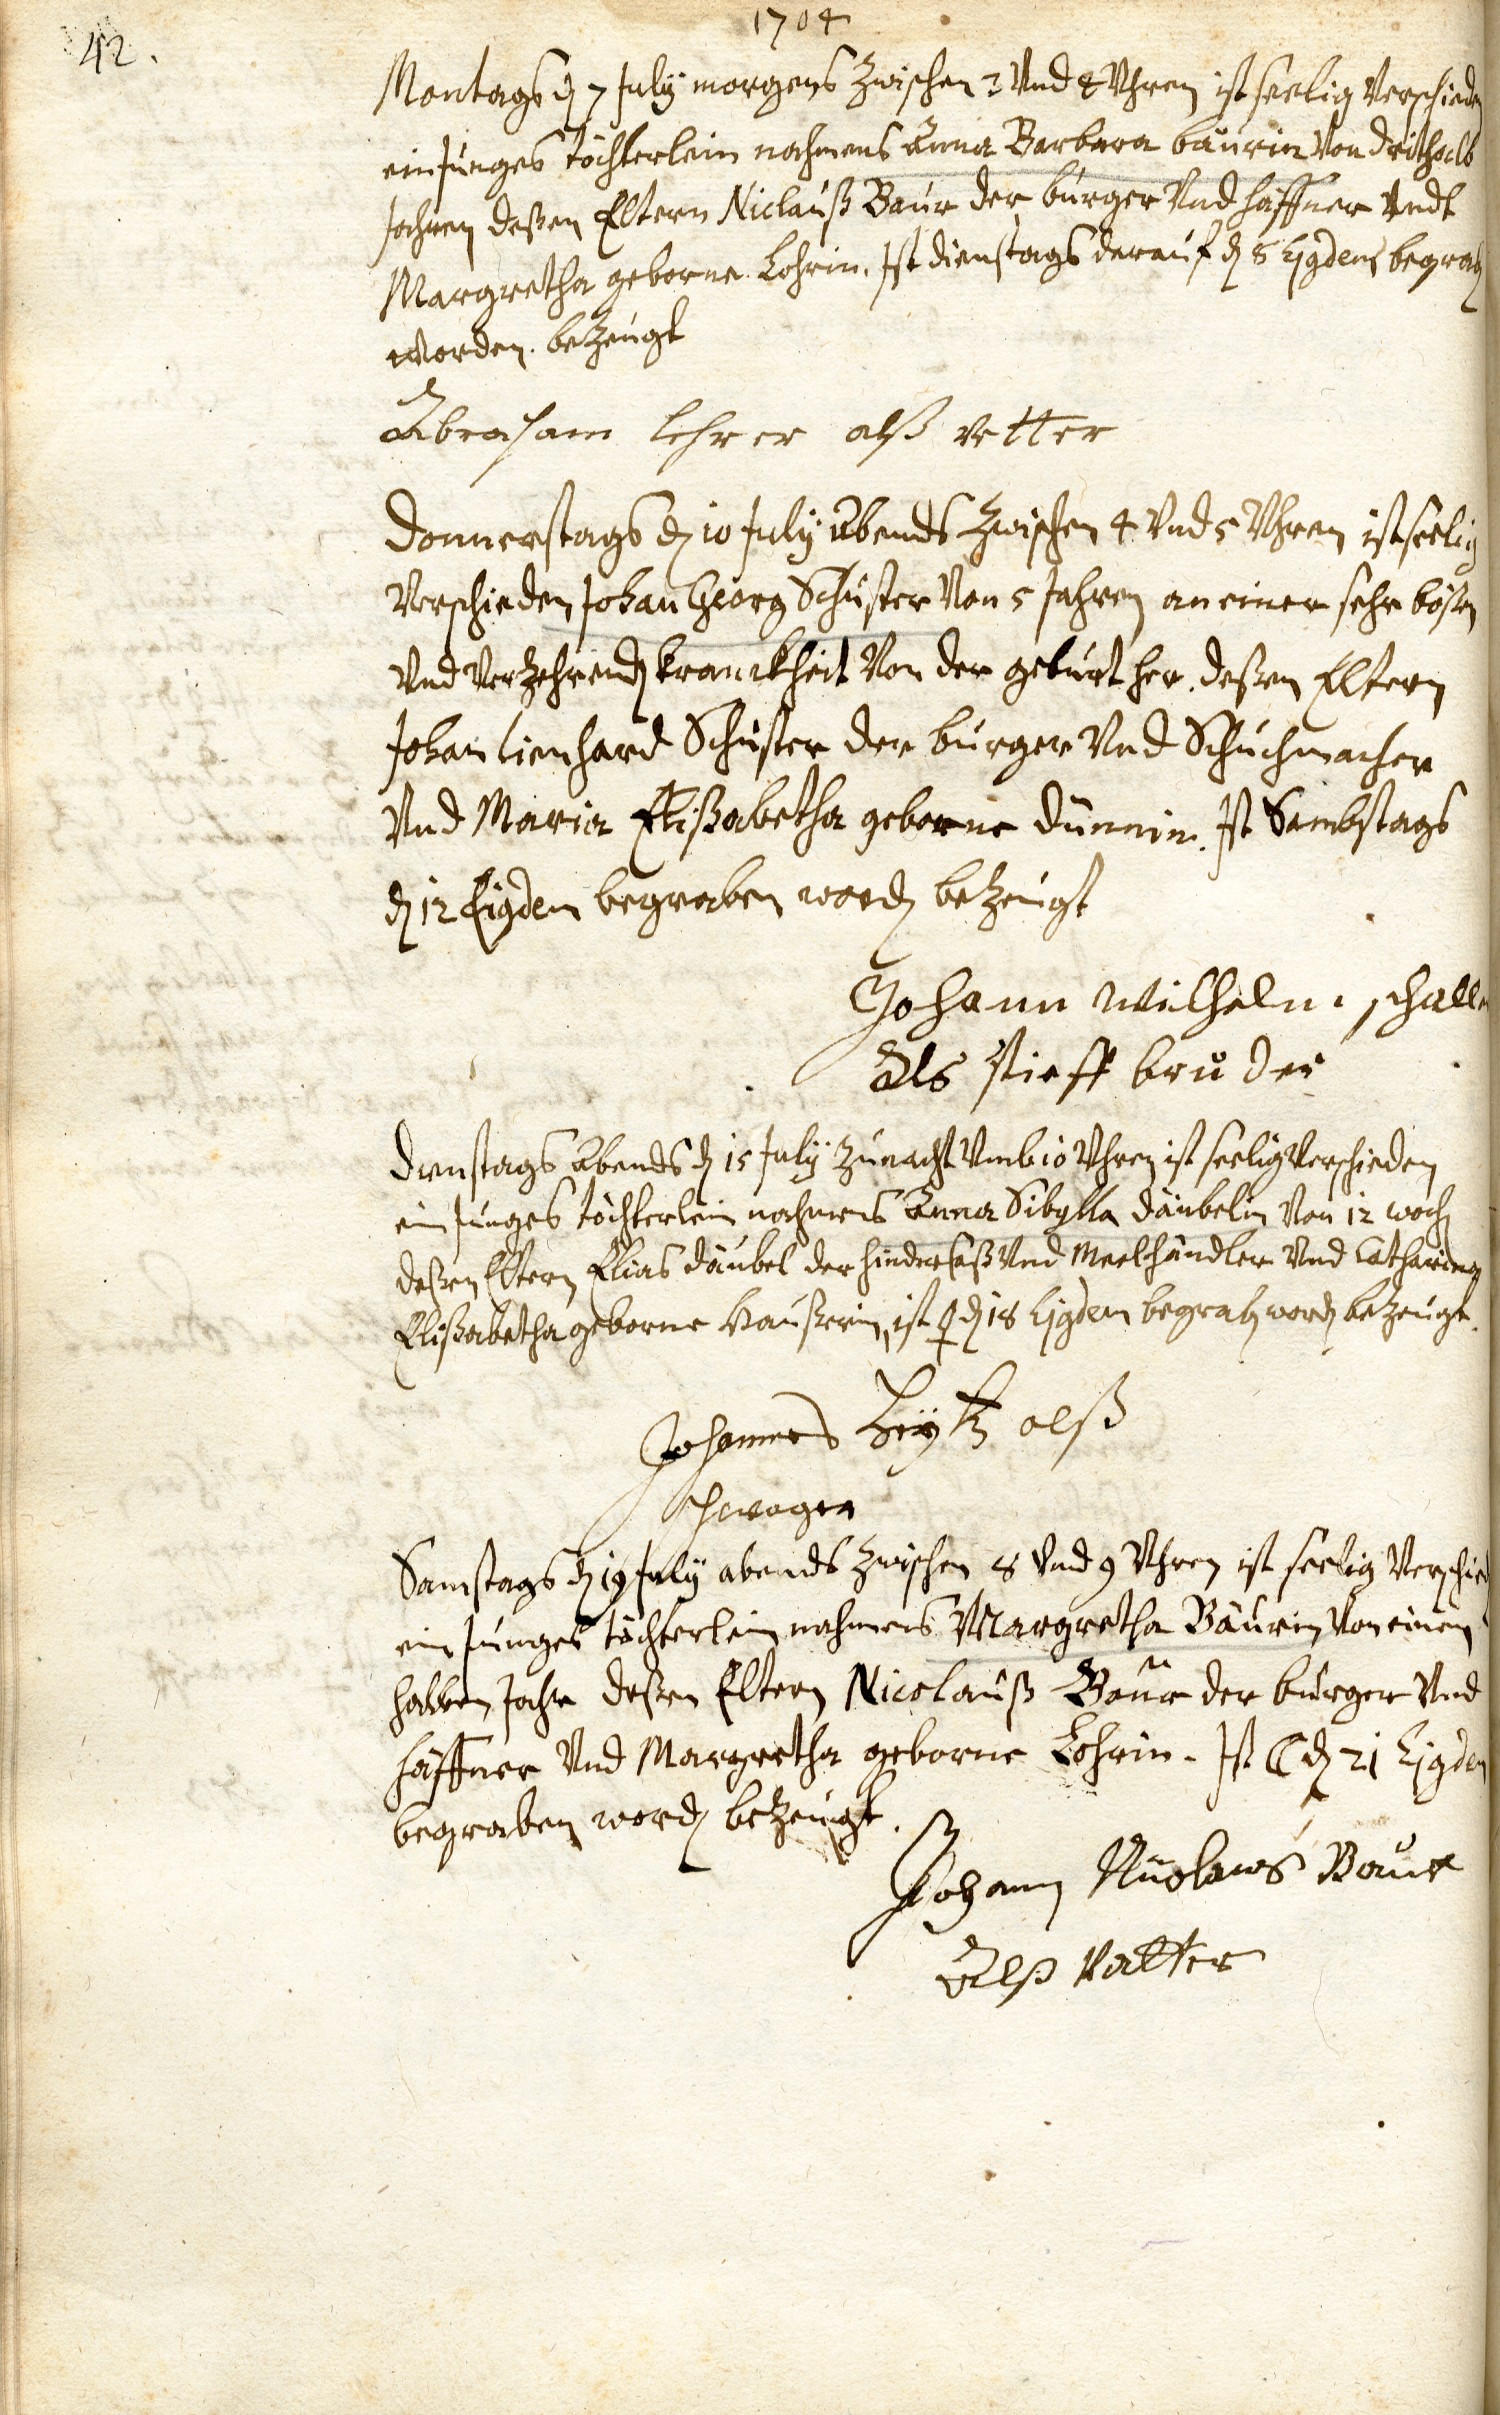 42.
1704
Montags d 7 July morgens zwischen 3 Und 4 Uhren ist seelig Verschieden
ein Junges töchterlein nahmens Anna Barbara baürin Von drithalb
Jahren deßen Eltern Niclauß Baur der burger Und häffner Undt
Margretha geborne Lohrin. Ist dienstags darauf d 8 Ejgdens begrab
worden. bezeugt
Abraham lehrer alß vetter
Donnerstags d 10 July Abends zwischen 4 Und 5 Uhren ist seelig
Verschieden Johan Georg Schuster Von 5 Jahren an einer sehr bößen
Und Verzehrend kranckheit Von der geburt her. deßen Eltern
Johan Lienhard Schuster der burger Und Schuchmacher
Und Maria Elißabetha geborne Dünnin. Ist Sambstags
d 12 Eigden begraben word bezeugt
Johann Wilhelm schall
Als stieff bruder
Dienstags Abends d 15 July zu nacht Umb 10 Uhren ist seelig Verschieden
ein Junges töchterlein nahmens Anna Sibylla däubelin Von 12 woch
deßen Eltern Elias däubel der hindersaß Und Meelhändler Und Catharina
Elißabetha geborne Haußerin, ist ♀ d 18 Ejgden begrab word bezeugt.
Johannes alß
schwager
Samstags d 19 July abends zwischen 8 Und 9 Uhren ist seelig Verschied
ein Junges töchterlein nahmens Margretha Bäurin Von einem
halben Jahr deßen Eltern Nicolauß Baur der burger Und
häffner Und Margretha geborne Lohrin. Ist ☾ d 21 Ejgden
begraben word bezeugt.
Johann Nicolaus Baur
Alß Vatter